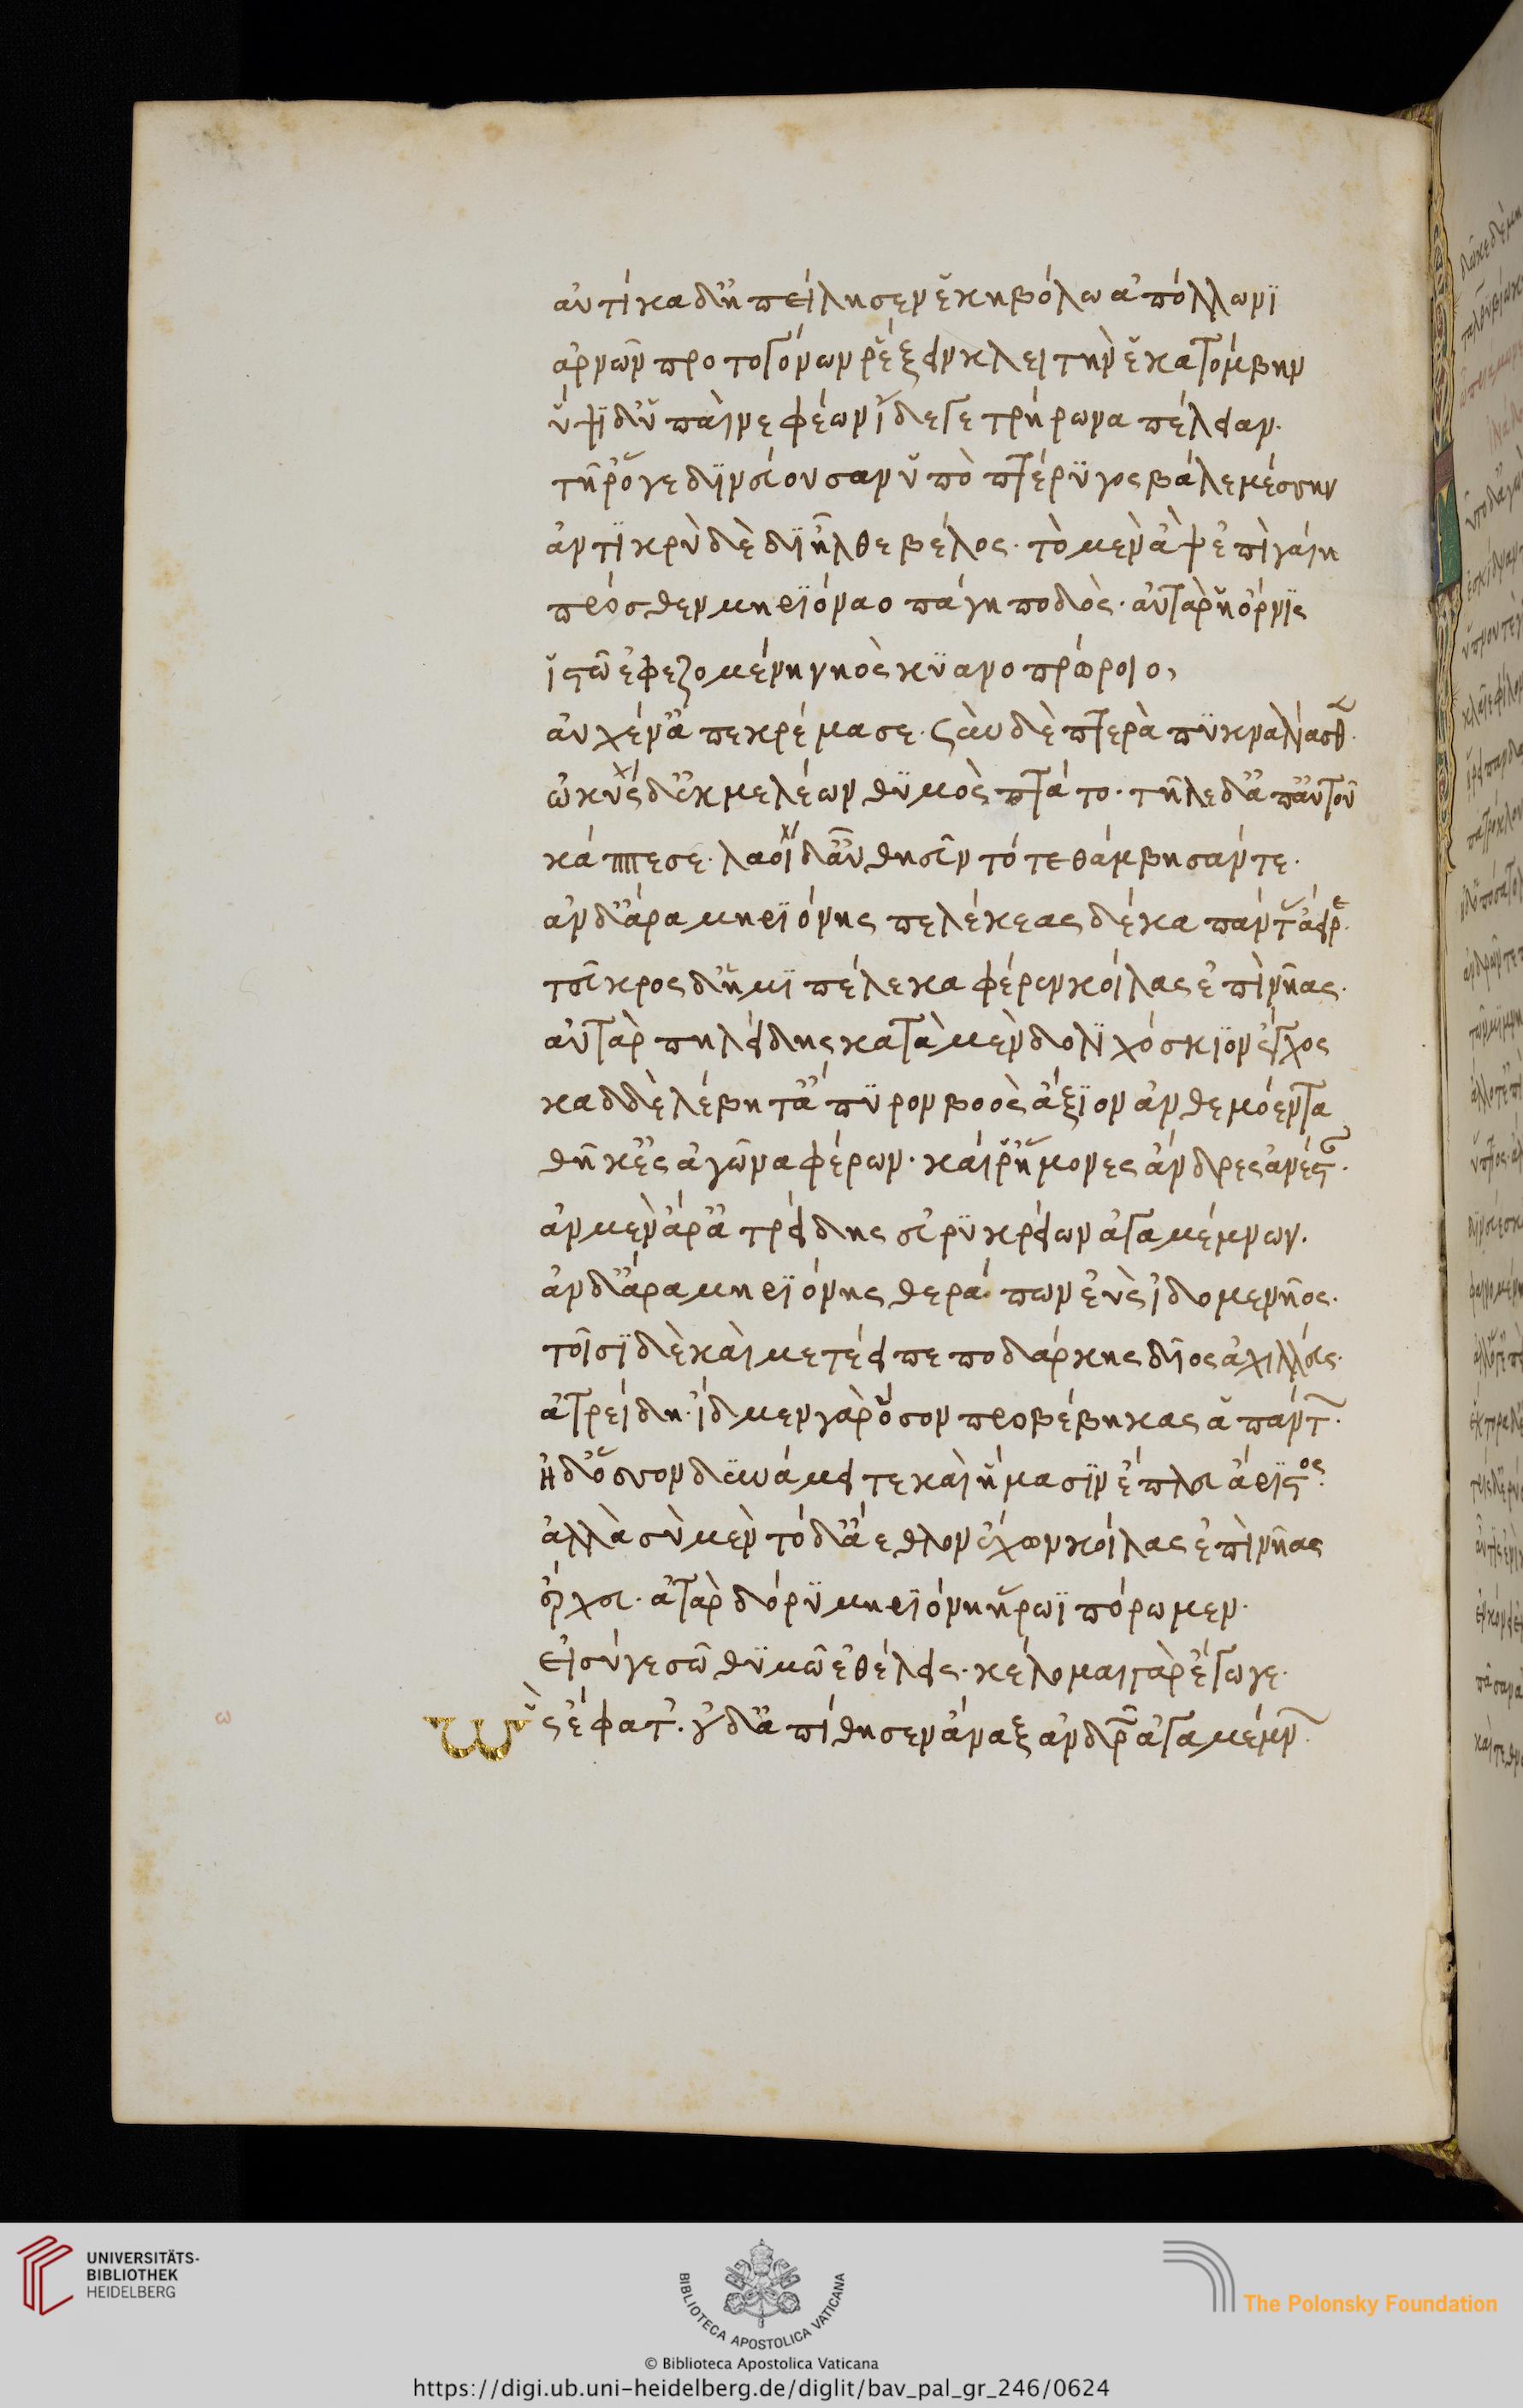 αὐτίκα δ' ἠπείλησεν ἑκηβόλω ἀπόλλωνϊ
ἀρνῶν προτογόνων ῥέξειν κλειτὴν ἑκατόμβην
ὕψϊ δ' ὑπαὶ νεφέων ἴδετε τρήρωνα πέλειαν.
τῆρ' ὅγε δϊνεύουσαν ὑπὸ πτέρϋγος βάλε μέσσην
ἀντϊκρὺ δὲ δϊῆλθε βέλος. τὸ μὲν ἂψ ἐπὶ γαίη
πρόσθεν μηρϊόναο πάγη ποδὸς. αὐτὰρ ἡ ὄρνϊς
ἱστῶ ἐφεζομένη νηὸς κϋανοπρώροιο,
αὐχέν' ἀπεκρέμασε. σὺν δὲ πτερὰ πϋκνὰ λίασθεν.
ὠκὺς δ' ἐκ μελέων θϋμὸς πτάτο. τῆλε δ' ἀπ' αὐτοῦ
κάππεσε. λαοὶ δ' αὖ θηεῦντό τε θάμβησάν τε.
ἂν δ' ἄρα μηρϊόνης πελέκεας δέκα πάντας ἄειρε.
τεῦκρος δ' ἡμϊπέλεκα φέρεν κοίλας ἐπὶ νῆας.
αὐτὰρ πηλείδης κατὰ μὲν δολϊχόσκϊον ἔγχος
καδδὲ λέβητ' ἄπϋρον βοὸς ἄξϊον ἀνθεμόεντα
θῆκ' ἐς ἀγῶνα φέρων. καί ῥ' ἥμονες ἄνδρες ἀνέσταν.
ἂν μὲν ἄρ' ἀτρείδης εὐρϋκρείων ἀγαμέμνων.
ἂν δ' ἄρα μηρϊόνης θεράπων ἐὺς ἰδομενῆος.
τοῖσϊ δὲ καὶ μετέειπε ποδάρκης δῖος ἀχιλλεύς.
ἀτρείδη. ἴδμεν γὰρ ὅσον προβέβηκας ἁπάντων.
ἠδ' ὅσσον δϋνάμει τε καὶ ἥμασϊν ἔπλευ ἄρϊστος.
ἀλλὰ σὺ μὲν τόδ' ἄεθλον ἔχων κοίλας ἐπὶ νῆας
ἔρχευ. ἀτὰρ δόρϋ μηρϊόνη ἥρωϊ πόρωμεν.
εἰ σύγε σῶ θϋμῶ ἐθέλεις. κέλομαι γὰρ ἔγωγε.
ὣς ἔφατ'. οὐδ' ἀπίθησεν ἄναξ ἀνδρῶν ἀγαμέμνων.
UNIVERSITÄTS-
BIBLIOTHEK
HEIDELBERG
BIBLIOTECA APOSTOLICA VATICANA
The Polonsky Foundation
© Biblioteca Apostolica Vaticana
https://digi.ub.uni-heidelberg.de/diglit/bav_pal_gr_246/0624